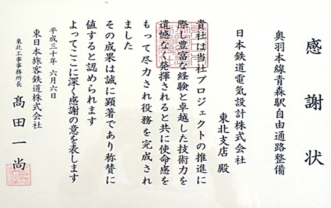 感謝状
奥羽本線青森駅自由通路整備
日本鉄道電気設計株式会社
東北支店 殿
貴社は当社プロジェクトの推進に
際し豊富な経験と卓越した技術力を
遺憾なく発揮されると共に使命感を
もって尽力され役務を完成され
ました
その成果は誠に顕著であり称賛に
値すると認められます
よってここに深く感謝の意を表します
平成三十年 六月六日
東日本旅客鉄道株式会社
東北工事事務所長 髙田一尚